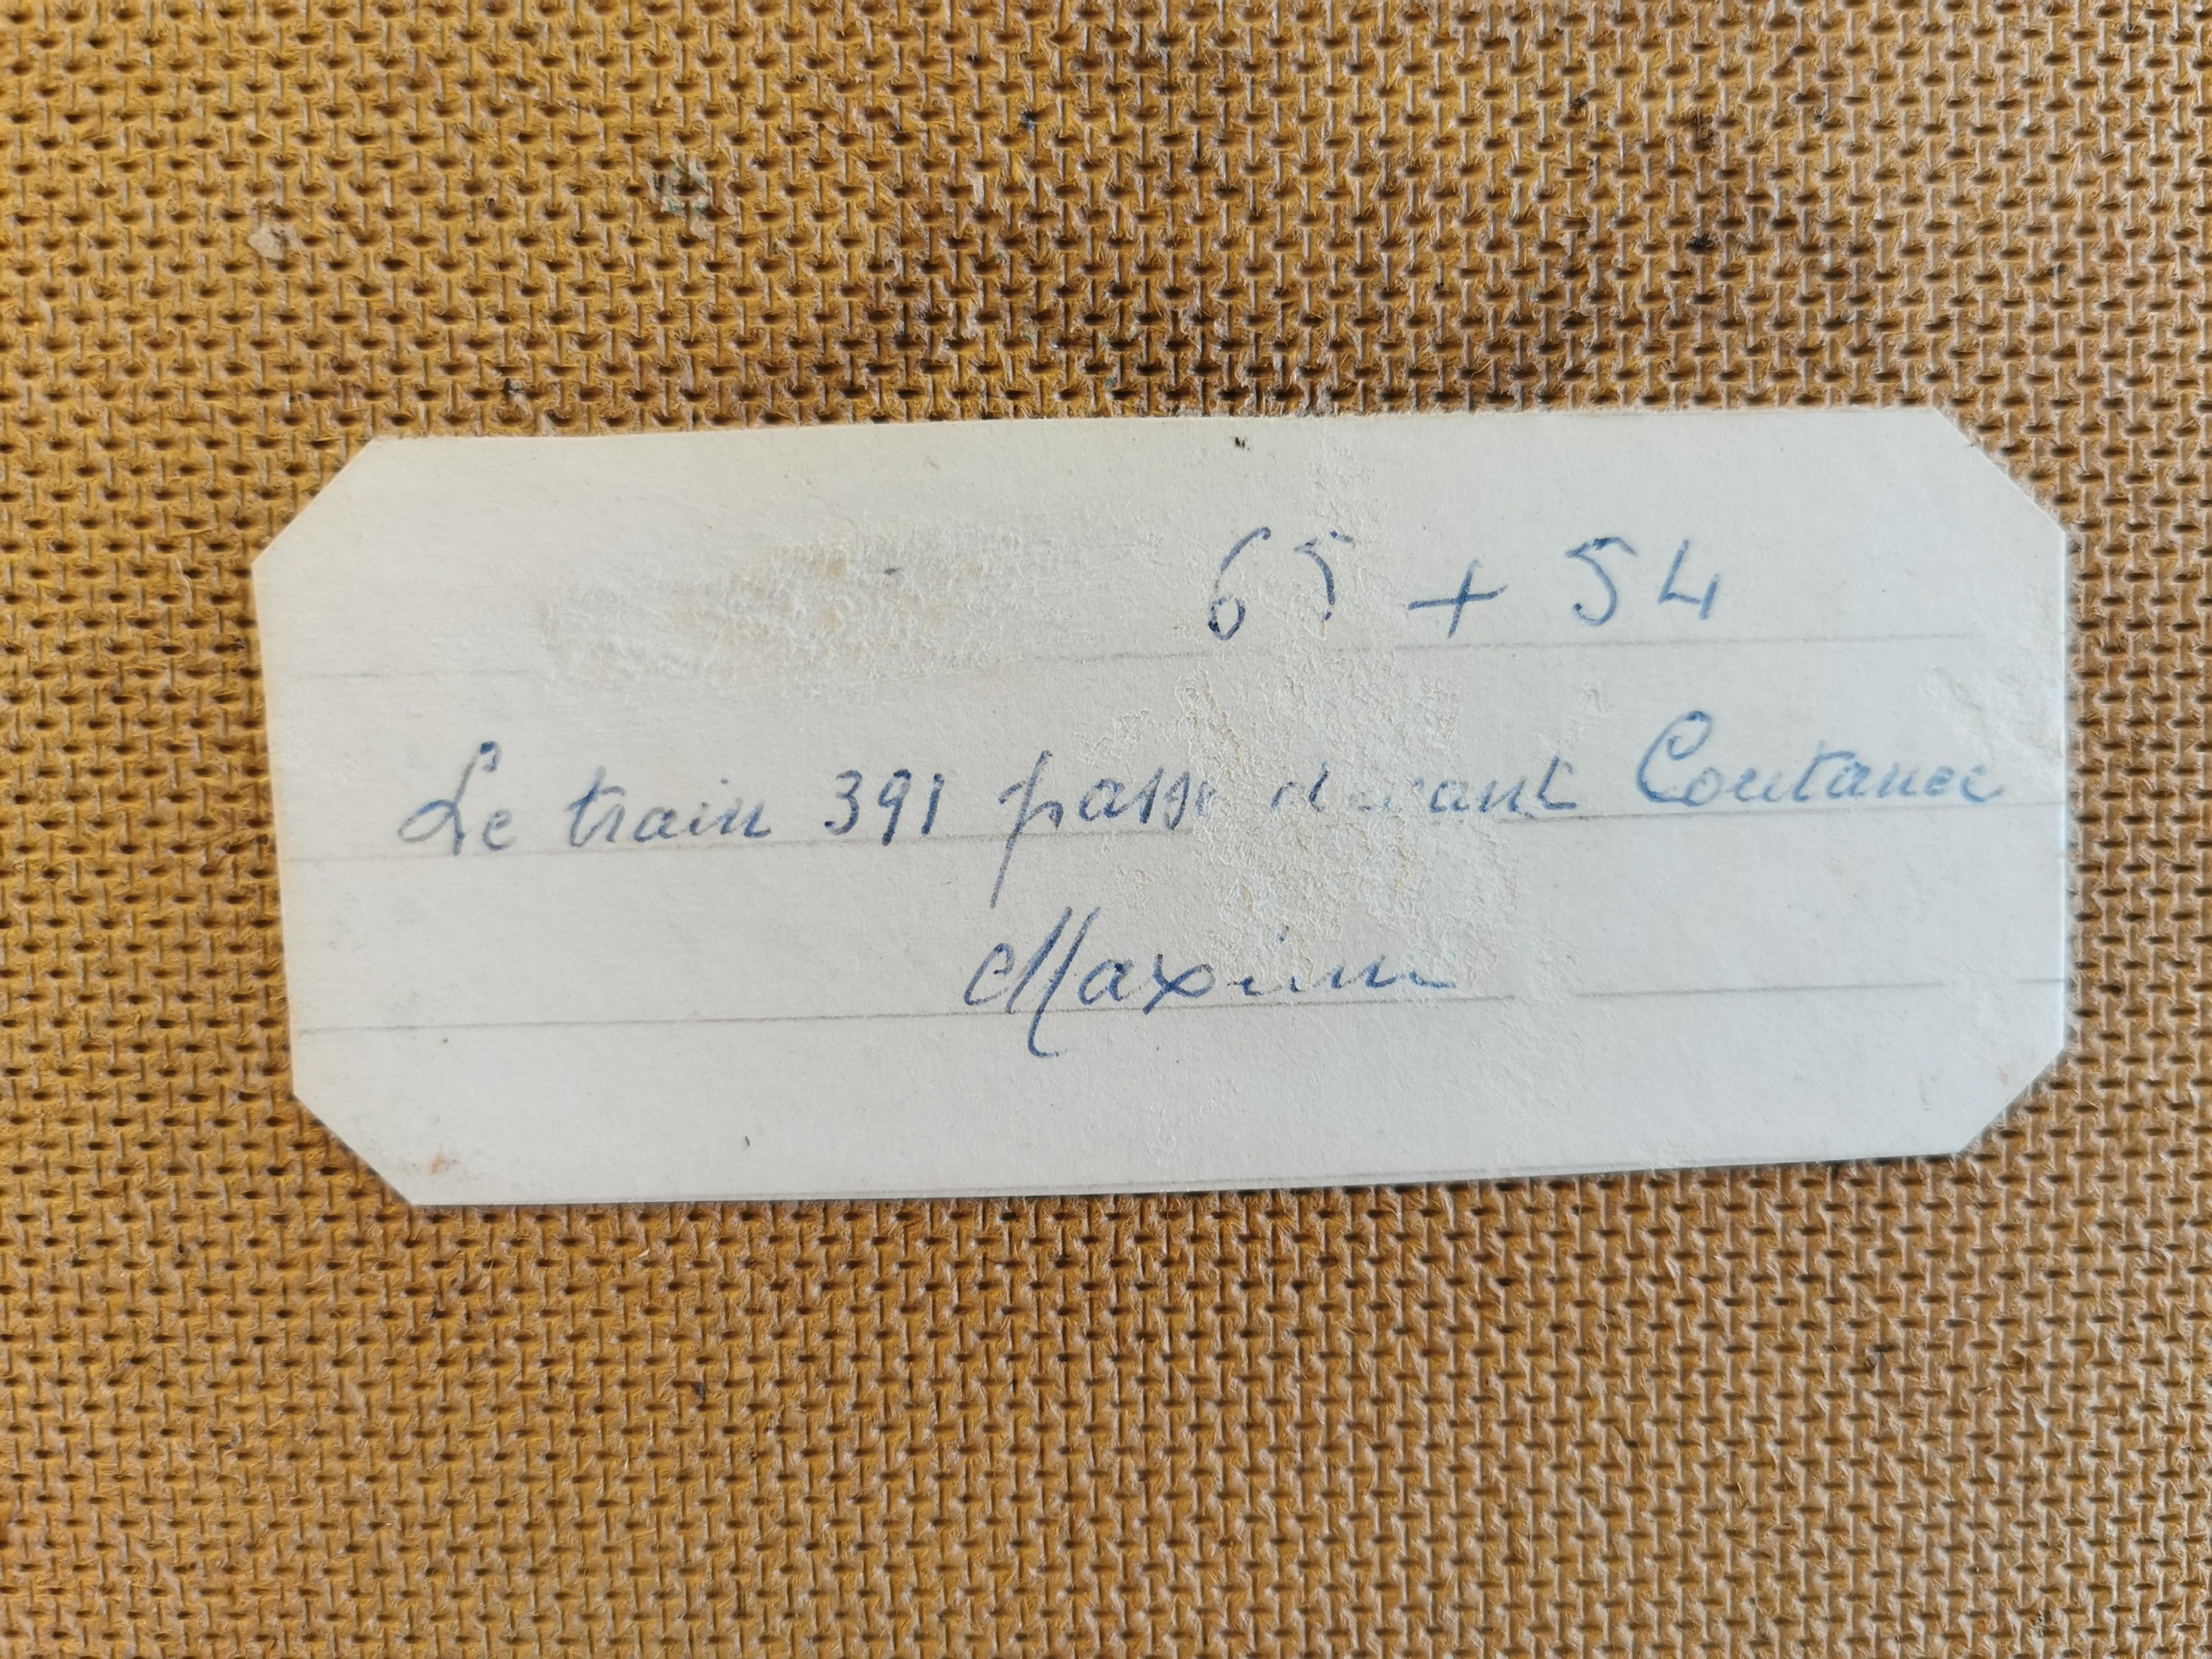 65 + 54
Le train 391 passe devant Coutance
Maxime